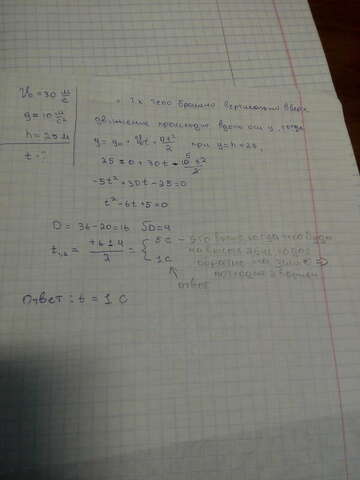 V₀ = 30 м/с
g = 10 м/с²
h = 25 м
t - ?
т.к тело брошено вертикально вверх
движение происходит вдоль оси y, тогда
y = y₀ + V₀t + at²/2 при y = h = 25,
25 = 0 + 30t - 10t²/2
-5t² + 30t - 25 = 0
t² - 6t + 5 = 0
D = 36 - 20 = 16 √D = 4
t₁,₂ = +6±4/2 = { 5 c - это время когда тело будет
1 c
обратно на землю ⇒
ответ
Ответ: t = 1 c